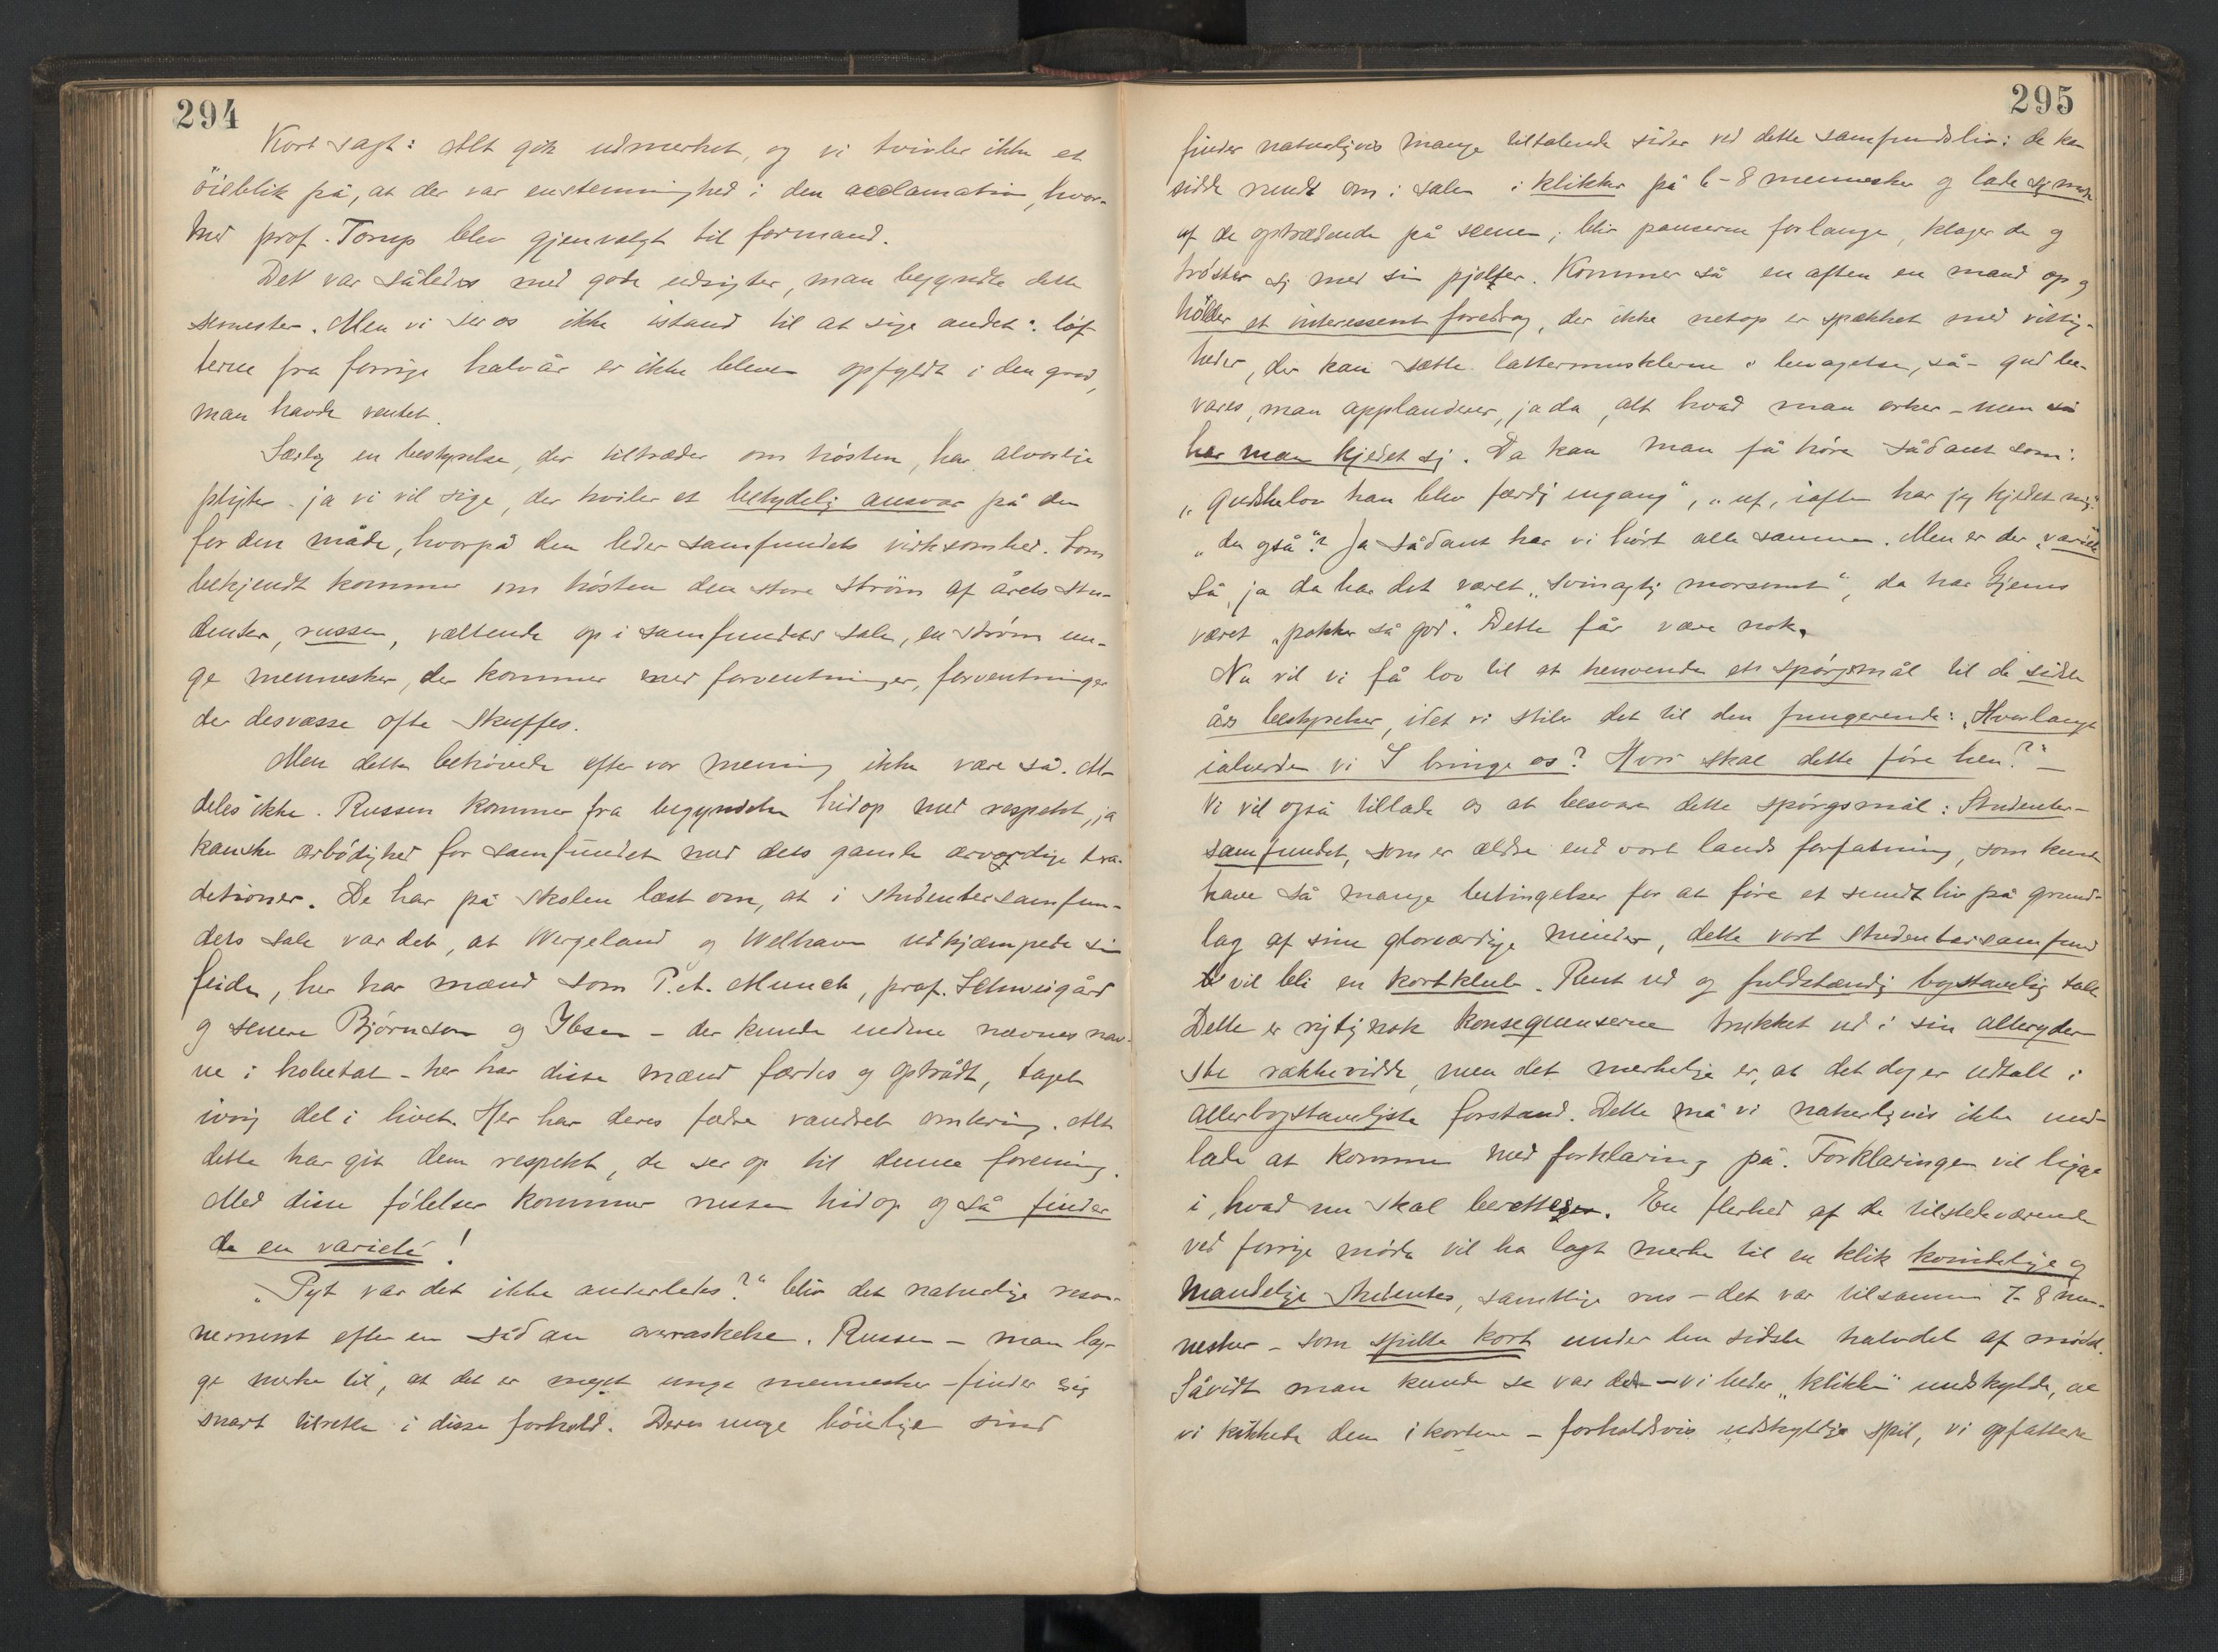 294
Kort sagt: Alt gik udmerket, og vi tviler ikke et
öieblik på, at der var enstemmighed i den acclamation, hvor-
med prof. Torup blev gjenvalgt til formand.
Det var således med gode udsigter, man begyndte dette
semester. Men vi ser os ikke istand til at sige andet: löf-
terne fra forrige halvår er ikke bleven opfyldt i den grad,
man havde ventet.
Særlig en bestyrelse, der tiltræder om hösten, har alvorlige
pligter. ja vi vil sige, der hviler et betydelig ansvar på den
for den måde, hvorpå den leder samfundets virksomhed. Som
bekjendt kommer om hösten den store ström af årets stu-
denter, russen, væltende op i samfundets sale, en ström un-
ge mennesker, der kommer med forventninger, forventninger
der desværre ofte skuffes.
Men dette behövede efter vor mening ikke være så. Al-
deles ikke. Russen kommer fra begyndelsen hidop med respekt, ja
kanske ærbödighed for samfundet med dets gamle ærværdige tra-
ditioner. De har på skolen læst om, at i studentersamfun-
dets sale var det, at Wergeland og Welhaven udkjæmpede sin
feide, her har mænd som P. A. Munch, prof. Schweigård
og senere Björnson og Ibsen – der kunde endnu nævnes nav-
ne i hobetal – her har disse mænd færdes og optrådt, taget
ivrig del i livet. Her har deres fædre vandret omkring. Alt
dette har git dem respekt, de ser op til denne forening.
Med disse fölelser kommer russen hidop og så finder
de en varieté!
„Pyt var det ikke anderledes?“ blir det naturlige reson-
nement efter en sådan overraskelse. Russen – man læg-
ge merke til, at det er meget unge mennesker – finder sig
snart tilrette i disse forhold. Deres unge böielige sind
295
finder naturligvis mange tiltalende sider ved dette samfundsliv: de kan
sidde rundt om i salen i klikker på 6–8 mennesker og lade sig more
af de optrædende på scenen; blir pauserne forlange, klager de og
tröster sig med sin pjolter. Kommer så en aften en mand op og
holder et interessent foredrag, der ikke netop er spækket med vittig-
heder, der kan sætte lattermusklerne i bevægelse, så – gud be-
vares, man applauderer, jada, alt hvad man orker – men så
har man kjedet sig. Da kan man få höre sådant som:
„gudskelov han blev færdig engang“, „uf, iaften har jeg kjedet mig“
„du også“? Ja sådant har vi hört alle sammen. Men er der „varieté“
så, ja da har det været „svinagtig morsomt“, da har Gjems
været „pokker så god“. Dette får være nok.
Nu vil vi få lov til at henvende et spörgsmål til de sidste
års bestyrelser, idet vi stiler det til den fungerende: „Hvorlangt
ialverden vil I bringe os? Hvor skal dette före hen?“ –
Vi vil også tillade os at besvare dette spörgsmål: Studenter-
samfundet, som er ældre end vort lands forfatning, som kunde
have så mange betingelser for at före et sundt liv på grund-
lag af sine glorværdige minder, dette vort studentersamfund
vil bli en kortklub. Rent ud og fuldstændig bogstavelig talt
Dette er rigtignok konsequenserne trukket ud i sin alleryder-
ste rækkevidde, men det merkelige er, at det dog er udtalt i
allerbogstaveligste forstand. Dette må vi naturligvis ikke und-
lade at komme med forklaring på. Forklaringen vil ligge
i, hvad nu skal berettes. En flerhed af de tilstedeværende
ved forrige möde vil ha lagt merke til en klik kvindelige og
mandelige studenter, samtlige rus – det var tilsammen 7–8 men-
nesker – som spilte kort under den sidste halvdel af mödet.
Såvidt man kunde se var det – vi beder „klikken“ undskylde, at
vi kikkede dem i kortene – forholdsvis uskyldige spil, vi opfattede